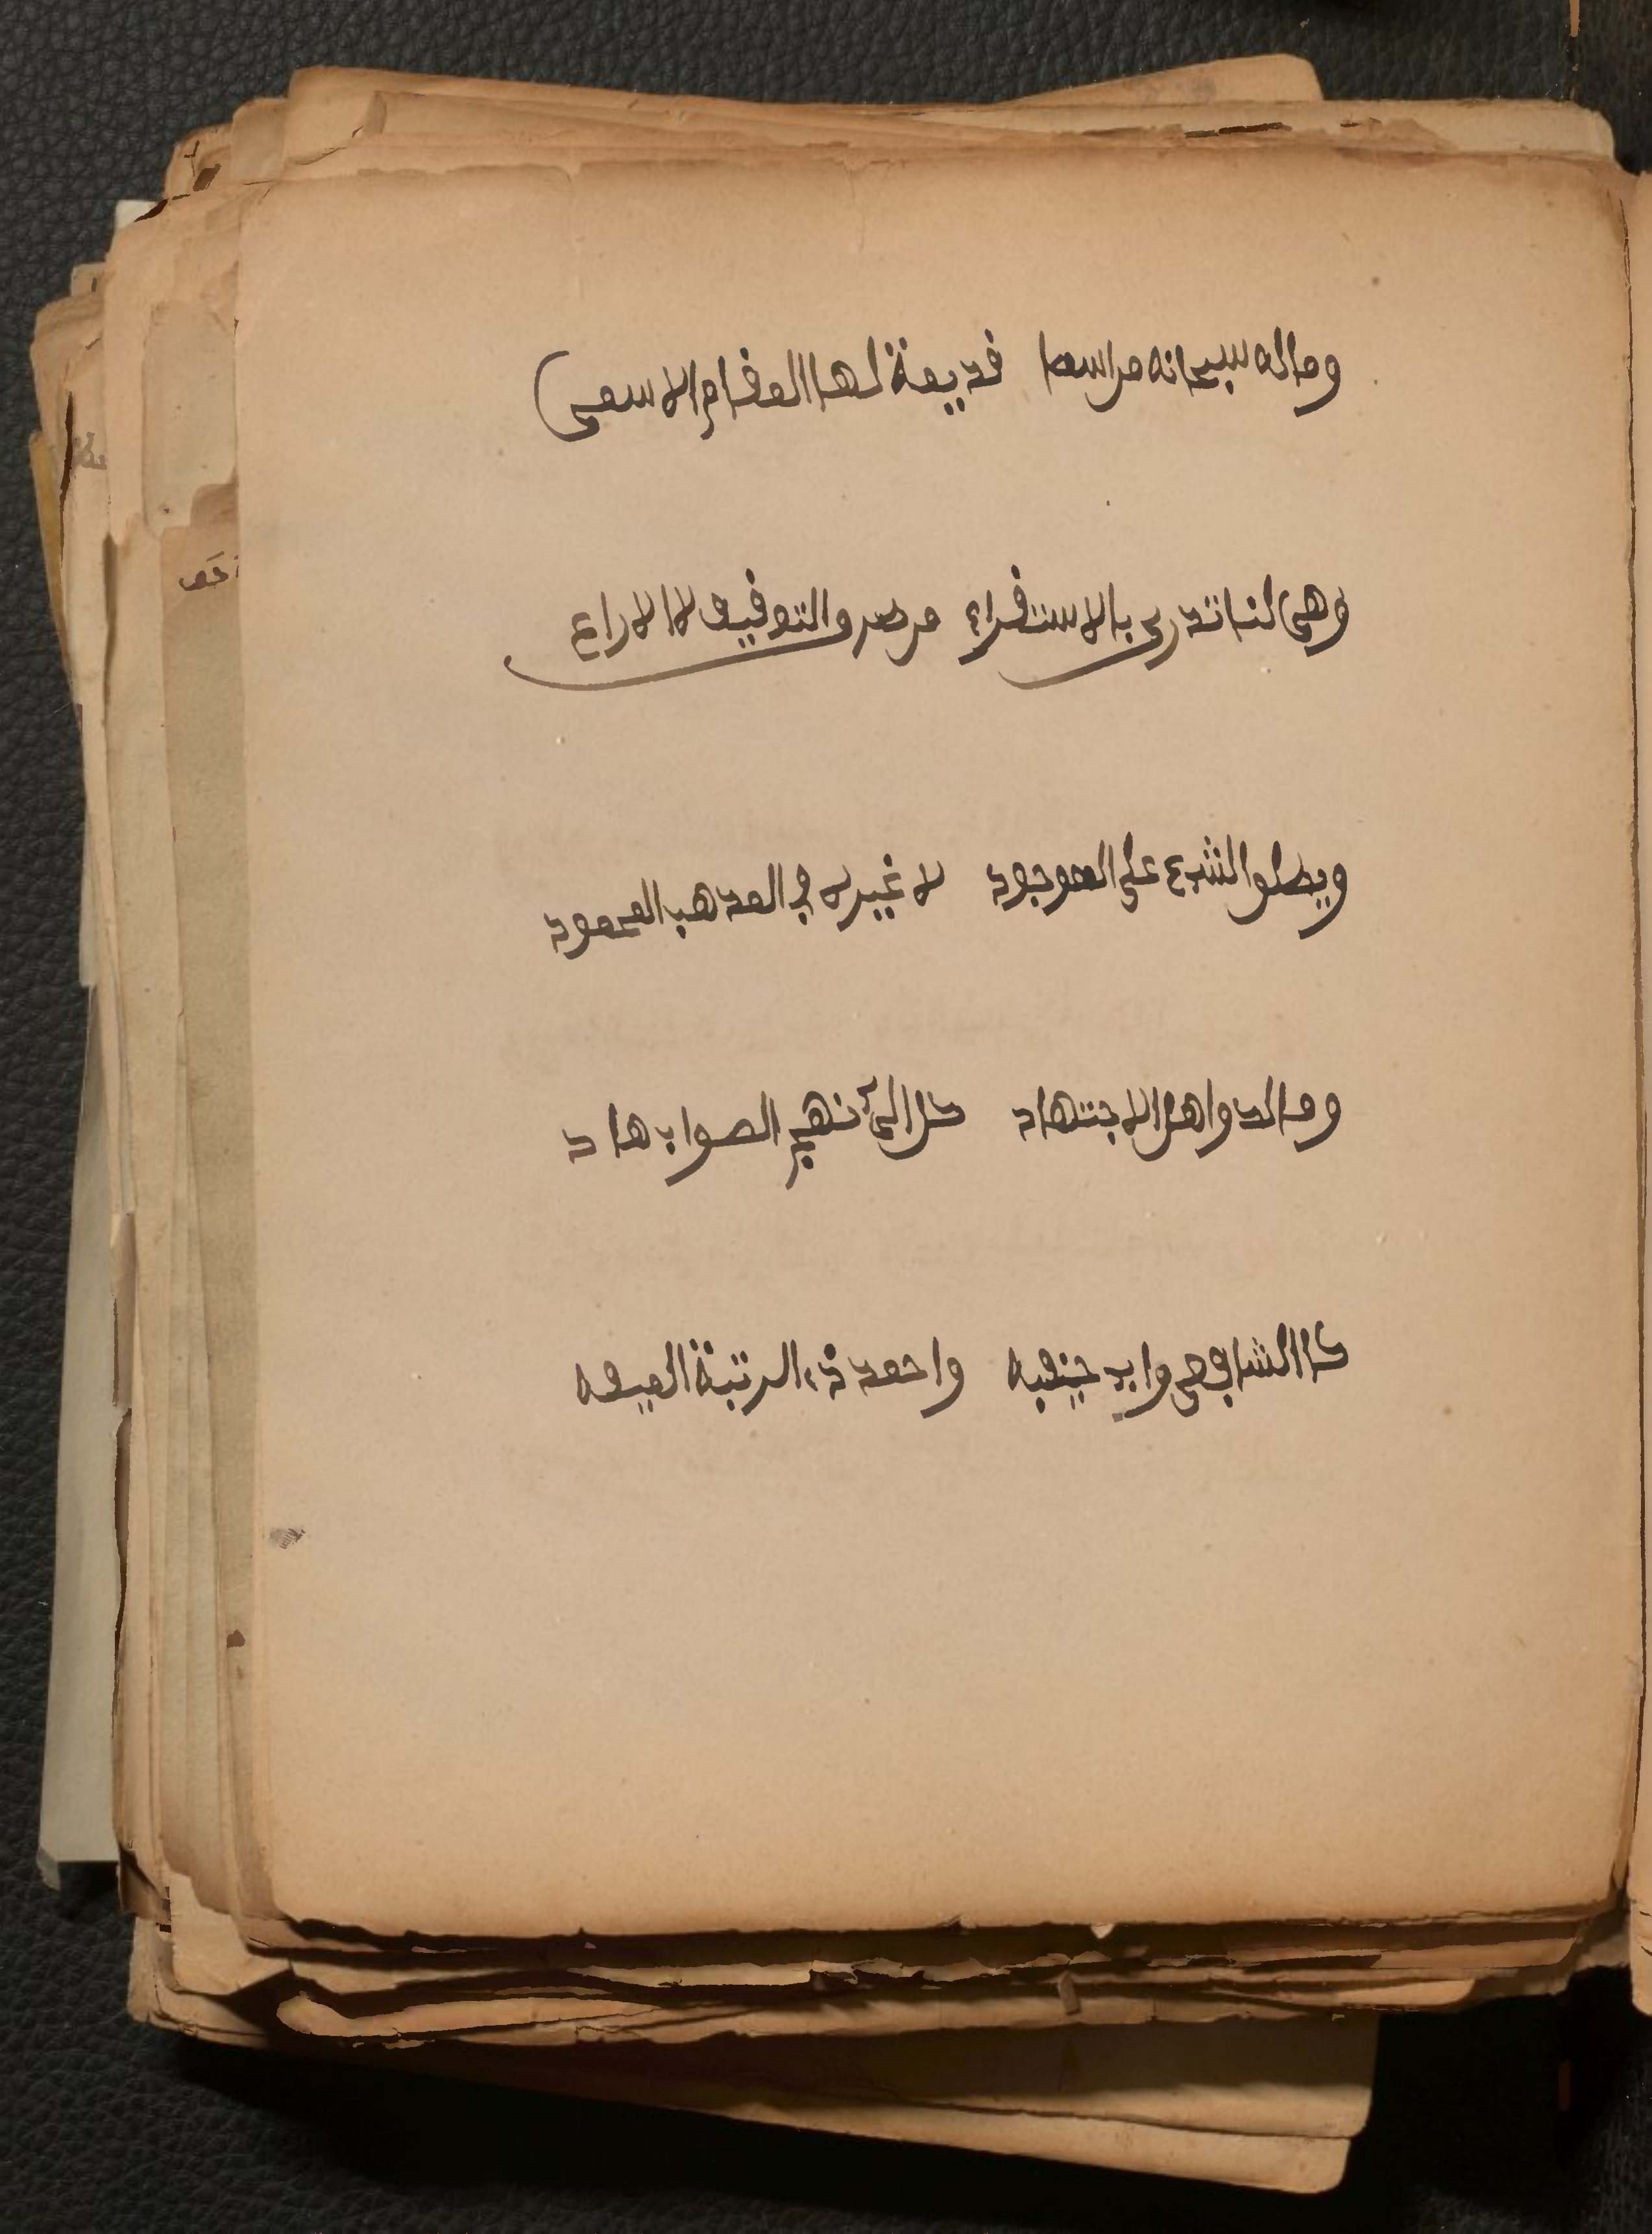 وماله سبحانه من اسما قديمة لها المقام الاسمى
وهي لنا تدرى بالاستقراء من نص والتوقيف لا الاراء
ويطلق الشيء على الموجود لا غيره في المذهب المحمود
ومالك واهل الاجتهاد كل الى نهج الصواب هاد
كالشافعي وابي حنيفه واحمد ذي الرتبة المنيفه